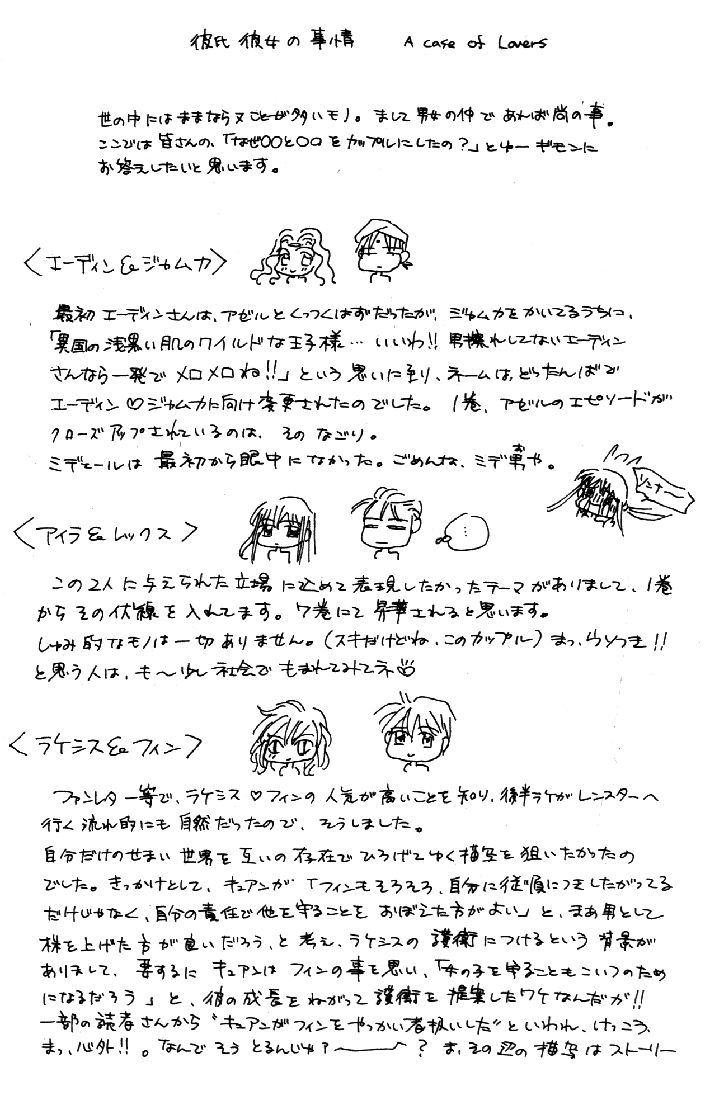 彼氏彼女の事情 A case of Lovers
世の中にはままならヌことが多いモノ。まして男女の仲であれば尚の事。
ここでは皆さんの、「なぜ〇〇と〇〇をカップルにしたの?」とゆーギモンに
お答えしたいと思います。
<エーディン&ジャムカ>
最初エーディンさんは、アゼルとくっつくはずだったが、ジャムカをかいてるうちに、
「異国の浅黒い肌のワイルドな王子様…いいわ!!男慣れしてないエーディン
さんなら一発でメロメロね!!」という思いに至り、ネームは、どったんばで
エーディン♡ジャムカに向け変更されたのでした。1巻、アゼルのエピソードが
クローズアップされているのは、そのなごり。
ミデェールは最初から眼中になかった。ごめんな、ミデ男や。
お
<アイラ&レックス>
…
この2人に与えられた立場に込めて表現したかったテーマがありまして、1巻
からその伏線を入れてます。7巻にて昇華されると思います。
しゅみ的なモノは一切ありません。(スキだけどね、このカップル)まっ、うそつき!!
と思う人は、も〜少し社会でもまれてみてネ
<ラケシス&フィン>
ファンレター等で、ラケシス♡フィンの人気が高いことを知り、後半ラケがレンスターへ
行く流れ的にも自然だったので、そうしました。
自分だけのせまい世界を互いの存在でひろげてゆく描写を狙いたかったの
でした。きっかけとして、キュアンが「フィンもそろそろ、自分に従順につきしたがってる
だけじゃなく、自分の責任で他を守ることをおぼえた方がよい」と、まあ男として
株を上げた方が良いだろう、と考え、ラケシスの護衛につけるという背景が
ありまして、要するにキュアンはフィンの事を思い、「女の子を守ることもこいつのため
になるだろう」と、彼の成長をねがって護衛を提案したワケなんだが!!
一部の読者さんから"キュアンがフィンをやっかい者扱いした"といわれ、けっこう、
まっ、心外!!。なんでそうとるんじゃ?〜?ま、その辺の描写はストーリー